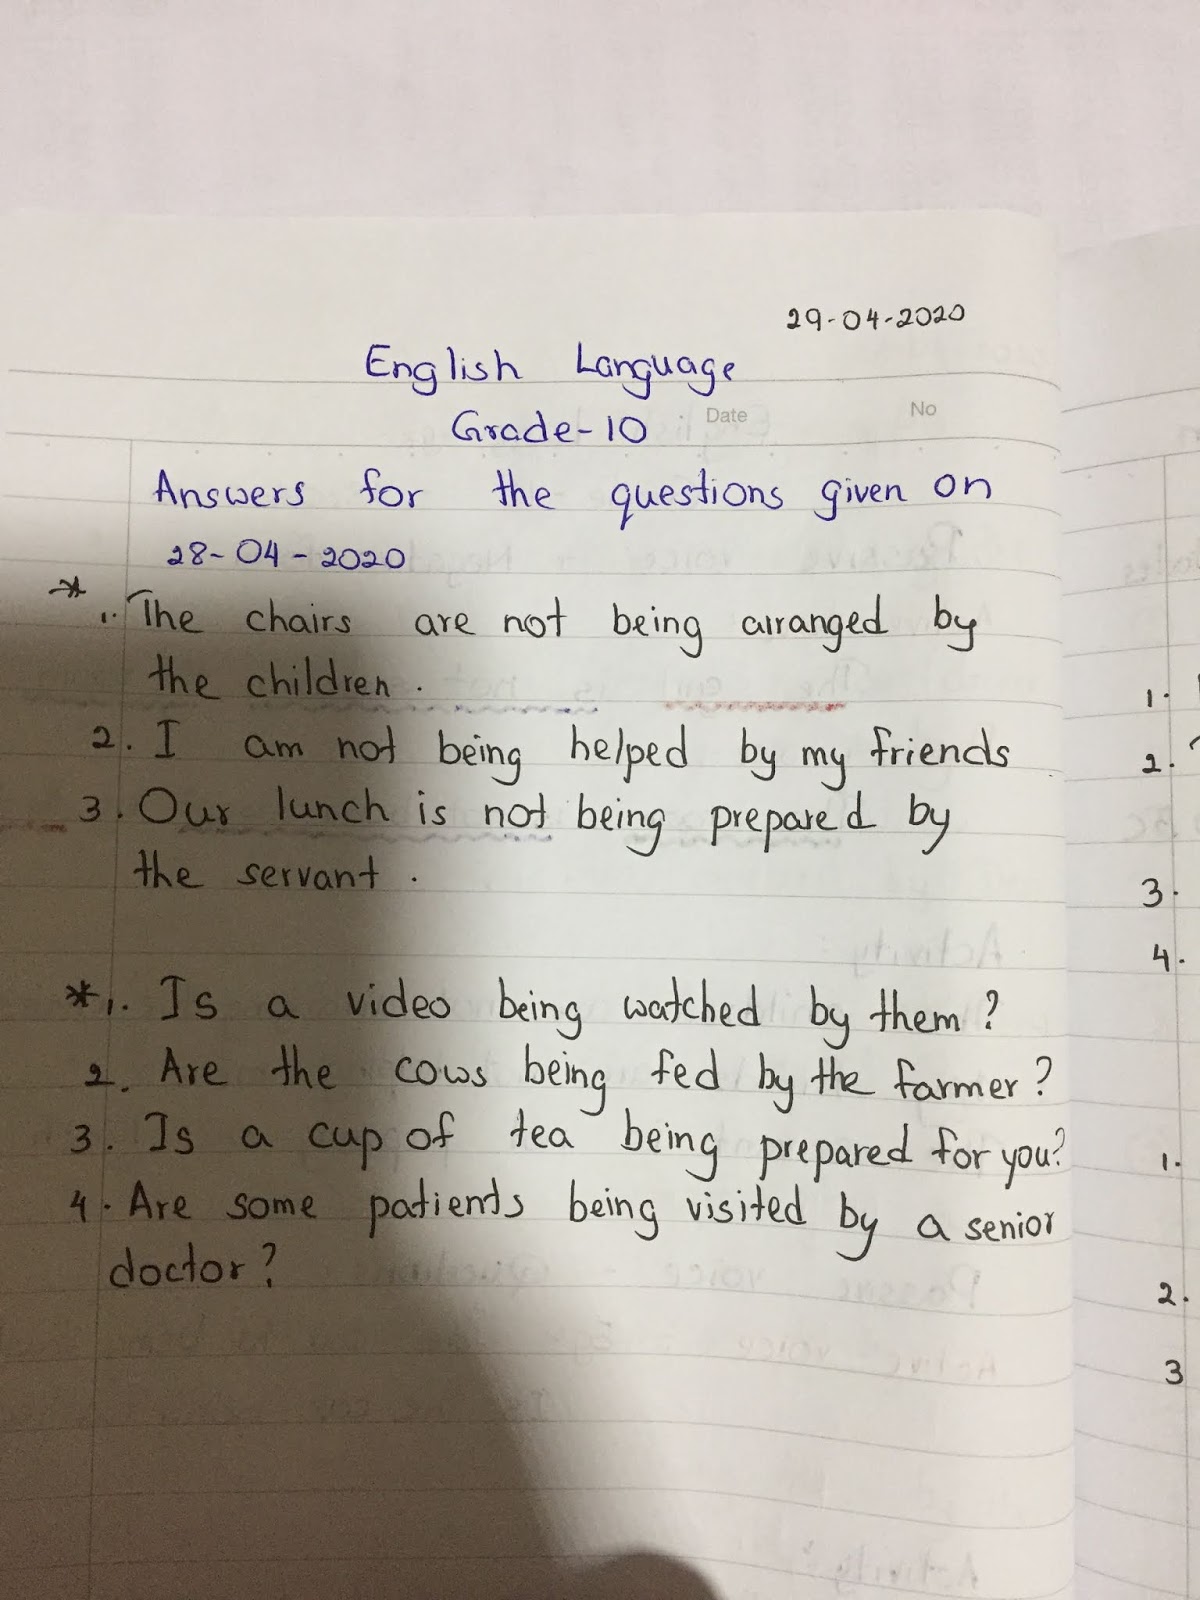 29-04-2020
English Language
Date No
Grade-10
Answers for the questions given on
28-04-2020
* 1. The chairs are not being arranged by
the children.
2. I am not being helped by my friends
3. Our lunch is not being prepared by
the servant.
* 1. Is a video being watched by them?
2. Are the cows being fed by the farmer?
3. Is a cup of tea being prepared for you?
4. Are some patients being visited by a senior
doctor?
1.
2.
3.
4.
1.
2.
3